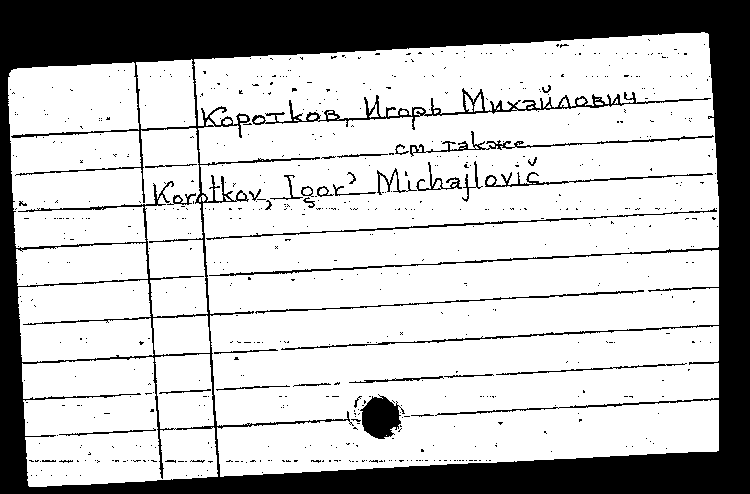 Коротков, Игорь Михайлович
см. также
Korotkov, Igor' Michajlovič